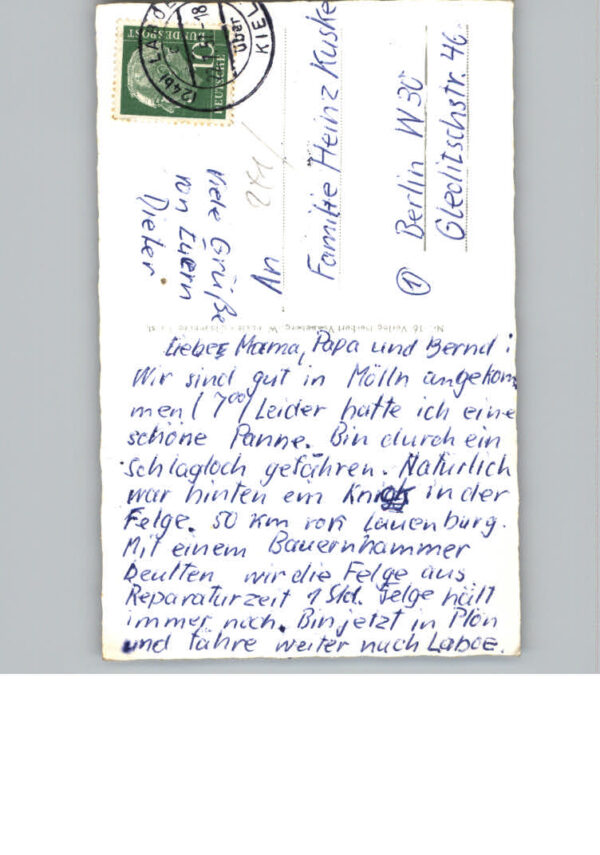 (24b) LABOE
über
KIEL
-18
DEUTSCHE
BUNDESPOST
10
241/
Viele Grüße
von Euern
Dieter
An
Familie Heinz Kuske
(1) Berlin W30
Gleditschstr. 46.
Liebe Mama, Papa und Bernd!
Wir sind gut in Mölln angekom
men (7⁰⁰) Leider hatte ich eine
schöne Panne. Bin durch ein
Schlagloch gefahren. Natürlich
war hinten ein Knick in der
Felge. 50 km von Lauenburg.
Mit einem Bauernhammer
beulten wir die Felge aus.
Reparaturzeit 1 Std. Felge hält
immer noch. Bin jetzt in Plön
und fahre weiter nach Laboe.